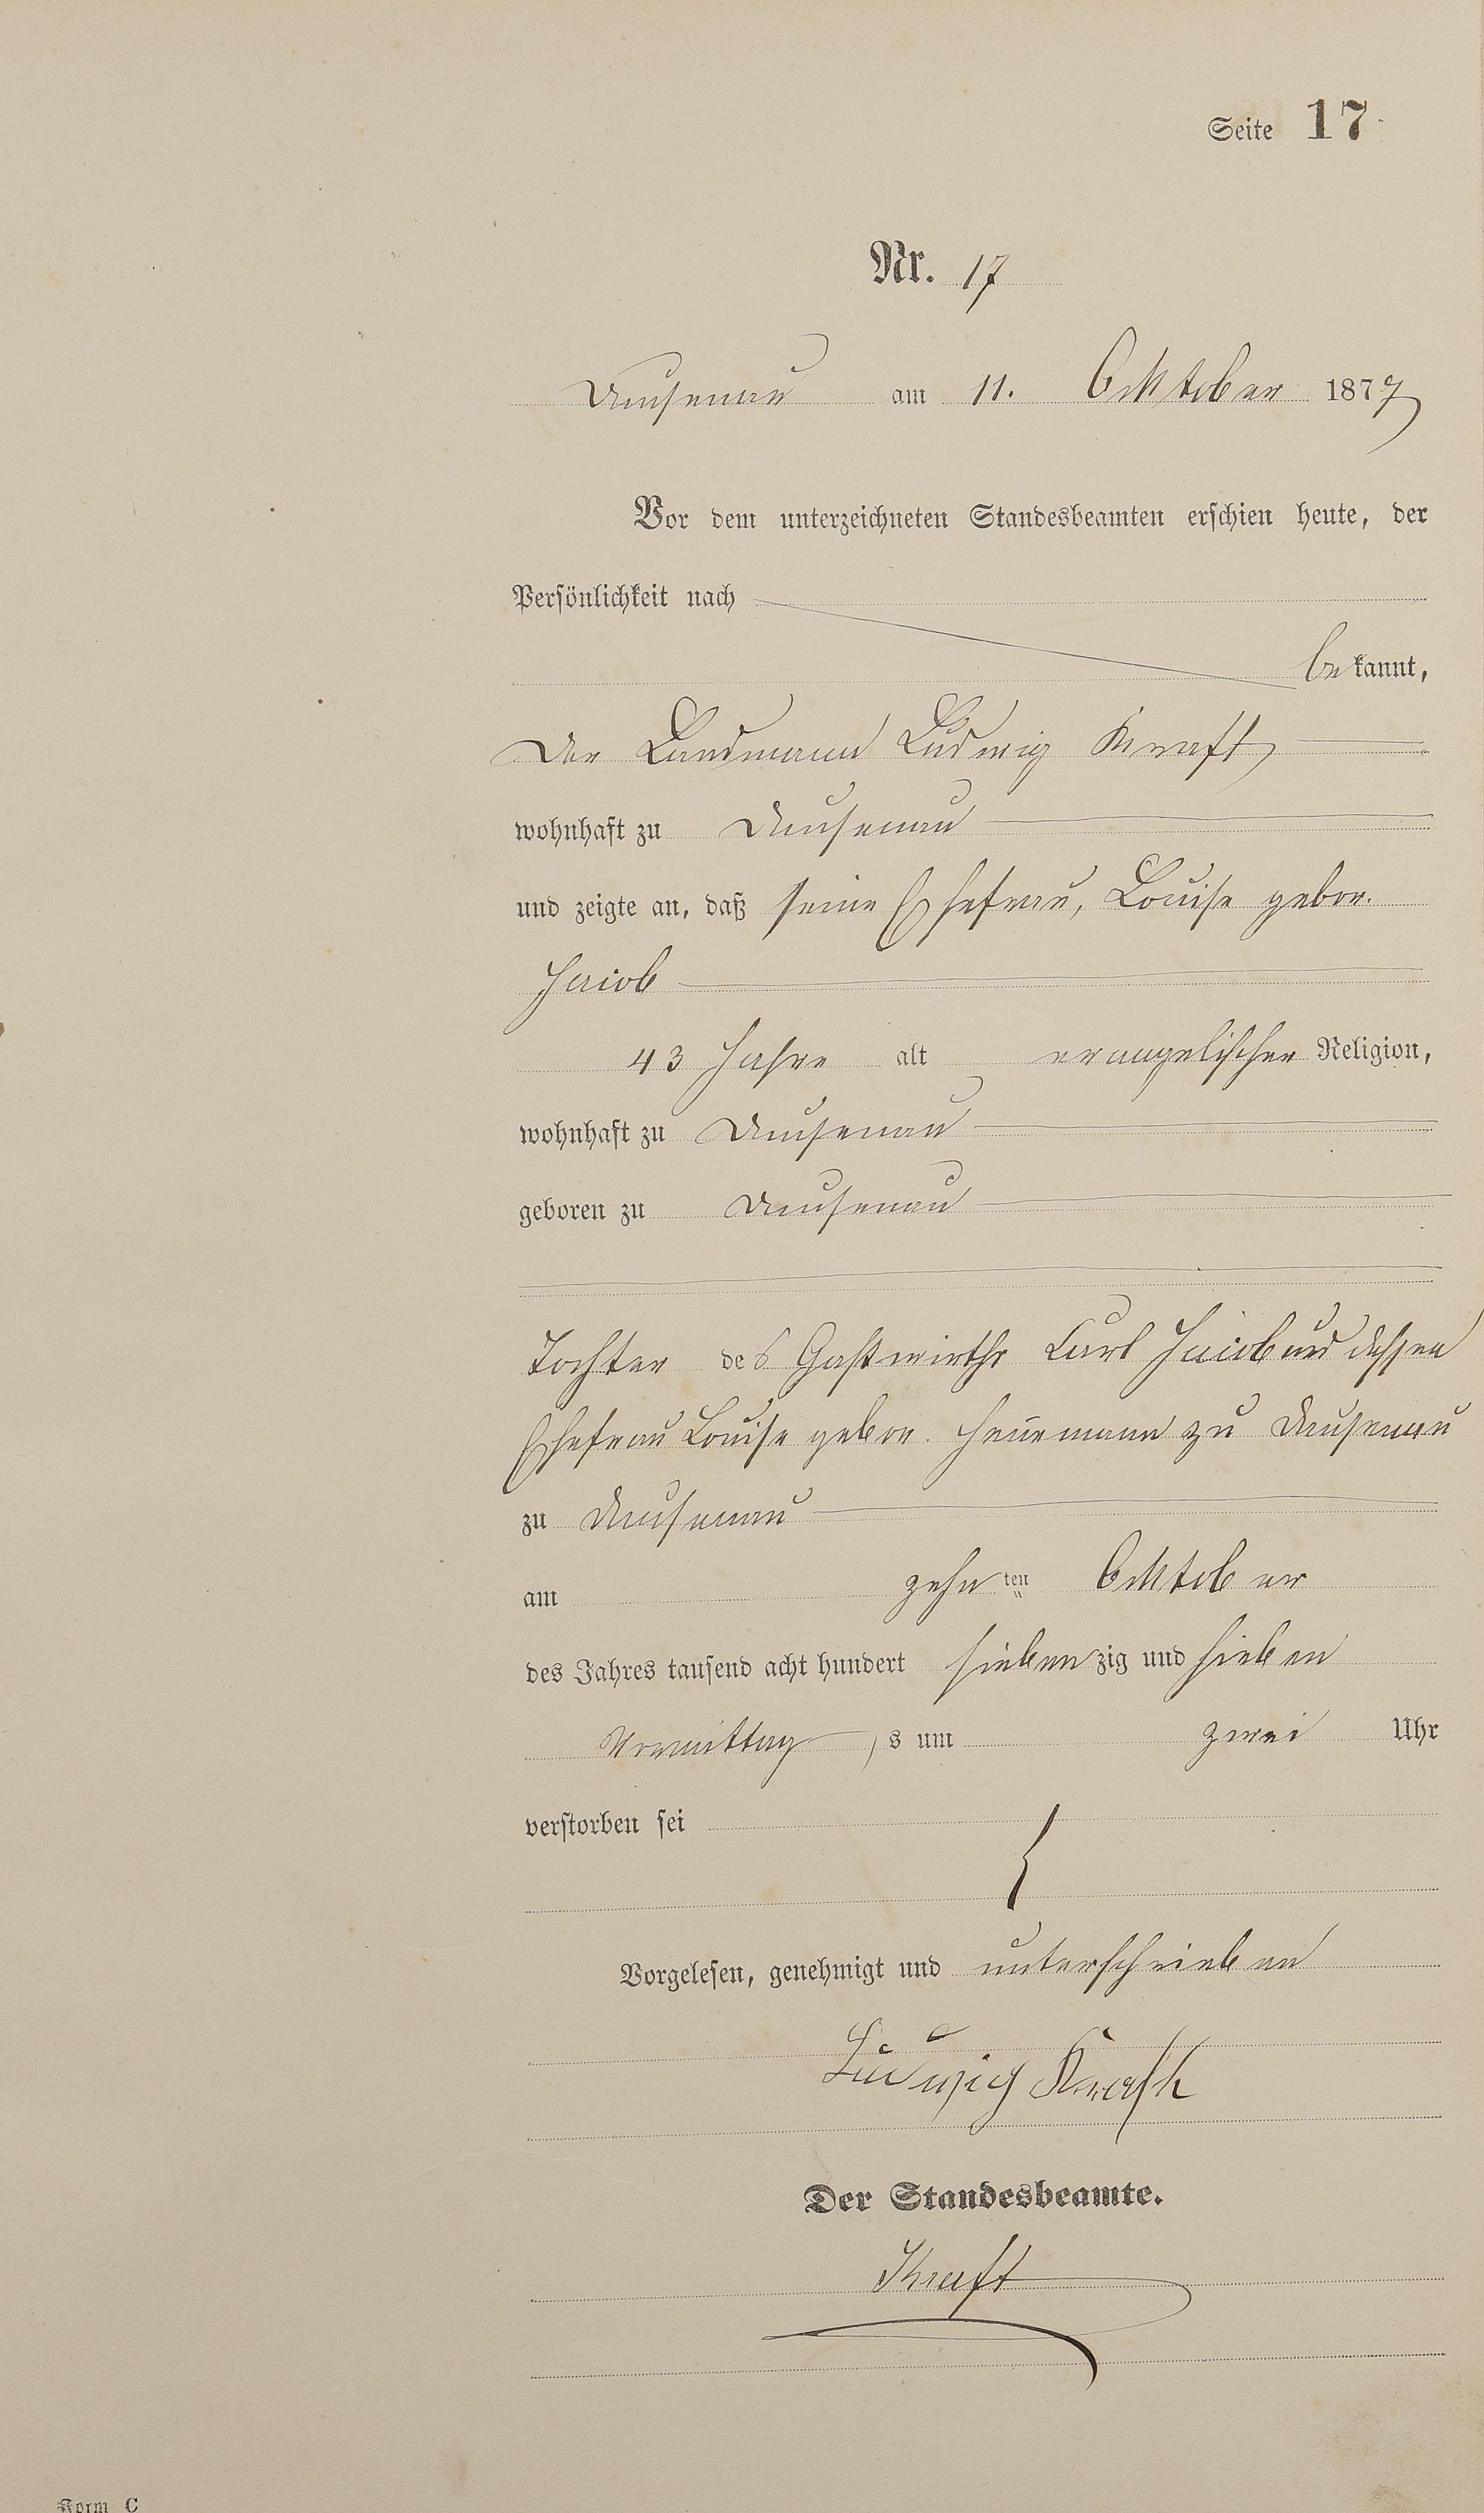 Seite 17
Nr. 17
Dausenau am 11. Oktober 1877
Vor dem unterzeichneten Standesbeamten erschien heute, der
Persönlichkeit nach
bekannt,
Der Landmann Ludwig Kraft
wohnhaft zu Dausenau
und zeigte an, daß seine Ehefrau, Louise gebor.
Jacob
43 Jahre alt evangelischer Religion,
wohnhaft zu Dausenau
geboren zu Dausenau
Tochter des Gastwirths Carl Jacob und dessen
Ehefrau Louise gebor. zu Dausenau
zu Dausenau
am zehnten Oktober
des Jahres tausend acht hundert siebenzig und sieben
Vormittags um zwei Uhr
verstorben sei
Vorgelesen, genehmigt und unterschrieben
Ludwig Kraft
Der Standesbeamte.
Kraft
Form C